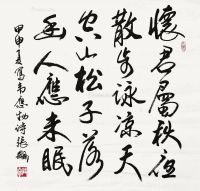 懷君屬秋夜
散步詠涼天
空山松子落
幽人應未眠
甲申夏寫韋應物詩張